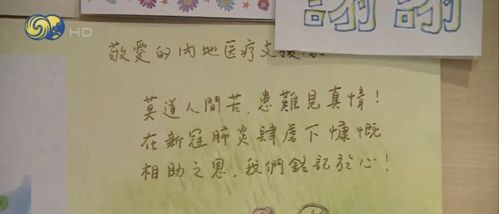 HD
謝謝
敬愛的內地医疗支援
莫道人間苦,患難見真情!
在新冠肺炎肆虐下慷慨
相助之恩,我們銘記於心!